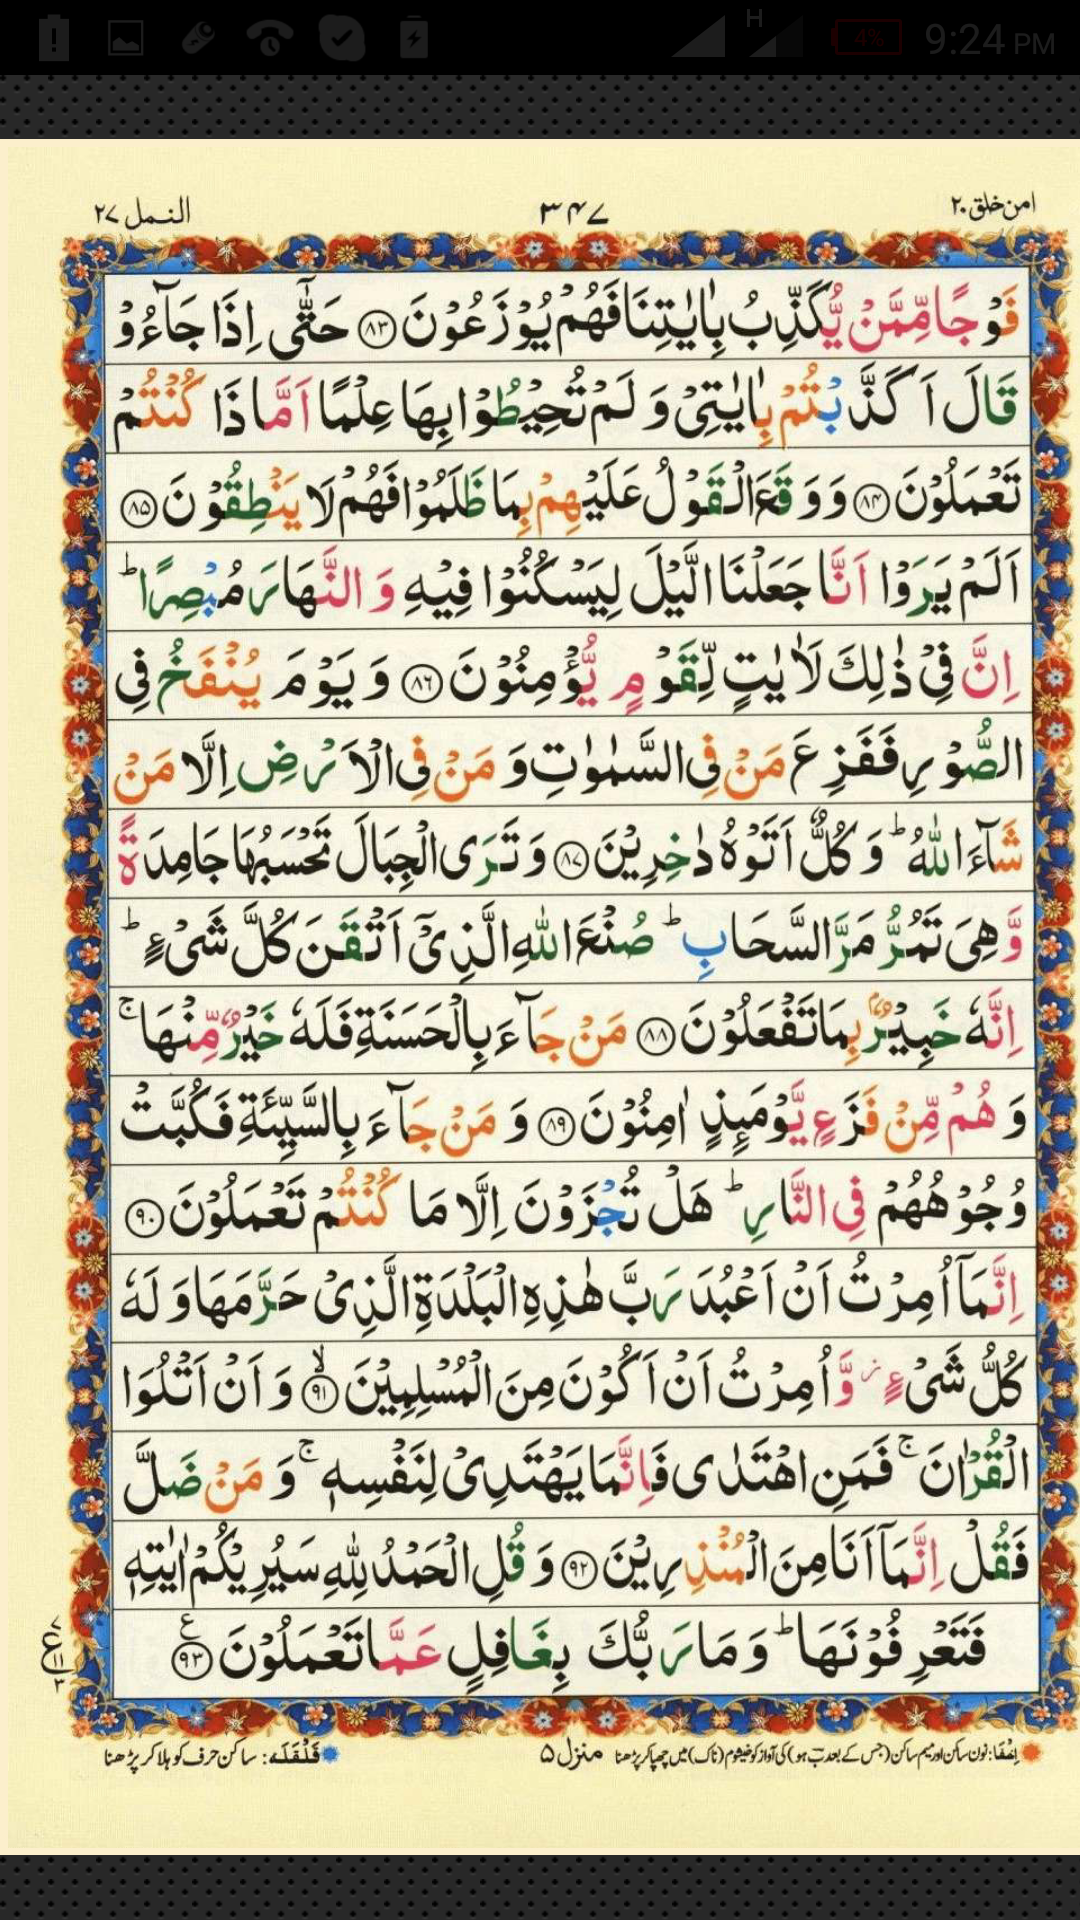 H 4% 9:24 PM
امن خلق ۲۰ ۳۴۷ النمل ۲۷
فَوْجًا مِّمَّنْ یُّكَذِّبُ بِاٰیٰتِنَا فَهُمْ یُوْزَعُوْنَ ﴿۸۳﴾ حَتّٰۤی اِذَا جَآءُوْ
قَالَ اَكَذَّبْتُمْ بِاٰیٰتِیْ وَ لَمْ تُحِیْطُوْا بِهَا عِلْمًا اَمَّا ذَا كُنْتُمْ
تَعْمَلُوْنَ ﴿۸۴﴾ وَ وَقَعَ الْقَوْلُ عَلَیْهِمْ بِمَا ظَلَمُوْا فَهُمْ لَا یَنْطِقُوْنَ ﴿۸۵﴾
اَلَمْ یَرَوْا اَنَّا جَعَلْنَا الَّیْلَ لِیَسْكُنُوْا فِیْهِ وَ النَّهَارَ مُبْصِرًا ؕ
اِنَّ فِیْ ذٰلِكَ لَاٰیٰتٍ لِّقَوْمٍ یُّؤْمِنُوْنَ ﴿۸۶﴾ وَ یَوْمَ یُنْفَخُ فِی
الصُّوْرِ فَفَزِعَ مَنْ فِی السَّمٰوٰتِ وَ مَنْ فِی الْاَرْضِ اِلَّا مَنْ
شَآءَ اللّٰهُ ؕ وَ كُلٌّ اَتَوْهُ دٰخِرِیْنَ ﴿۸۷﴾ وَ تَرَی الْجِبَالَ تَحْسَبُهَا جَامِدَةً
وَّ هِیَ تَمُرُّ مَرَّ السَّحَابِ ؕ صُنْعَ اللّٰهِ الَّذِیْۤ اَتْقَنَ كُلَّ شَیْءٍ ؕ
اِنَّهٗ خَبِیْرٌۢ بِمَا تَفْعَلُوْنَ ﴿۸۸﴾ مَنْ جَآءَ بِالْحَسَنَةِ فَلَهٗ خَیْرٌ مِّنْهَا ۚ
وَ هُمْ مِّنْ فَزَعٍ یَّوْمَىِٕذٍ اٰمِنُوْنَ ﴿۸۹﴾ وَ مَنْ جَآءَ بِالسَّیِّئَةِ فَكُبَّتْ
وُجُوْهُهُمْ فِی النَّارِ ؕ هَلْ تُجْزَوْنَ اِلَّا مَا كُنْتُمْ تَعْمَلُوْنَ ﴿۹۰﴾
اِنَّمَاۤ اُمِرْتُ اَنْ اَعْبُدَ رَبَّ هٰذِهِ الْبَلْدَةِ الَّذِیْ حَرَّمَهَا وَ لَهٗ
كُلُّ شَیْءٍ ؗ وَّ اُمِرْتُ اَنْ اَكُوْنَ مِنَ الْمُسْلِمِیْنَ ﴿۹۱﴾ۙ وَ اَنْ اَتْلُوَا
الْقُرْاٰنَ ۚ فَمَنِ اهْتَدٰی فَاِنَّمَا یَهْتَدِیْ لِنَفْسِهٖ ۚ وَ مَنْ ضَلَّ
فَقُلْ اِنَّمَاۤ اَنَا مِنَ الْمُنْذِرِیْنَ ﴿۹۲﴾ وَ قُلِ الْحَمْدُ لِلّٰهِ سَیُرِیْكُمْ اٰیٰتِهٖ
فَتَعْرِفُوْنَهَا ؕ وَ مَا رَبُّكَ بِغَافِلٍ عَمَّا تَعْمَلُوْنَ ﴿۹۳﴾ ع
۷ ع ۱۱ ۳
اِخْفَا: نون ساکن اور میم ساکن (جس کے بعد ب ہو) کی آواز کو خیشوم (ناک) میں چھپا کر پڑھنا منزل ۵ قَلْقَلَه: ساکن حرف کو ہلا کر پڑھنا